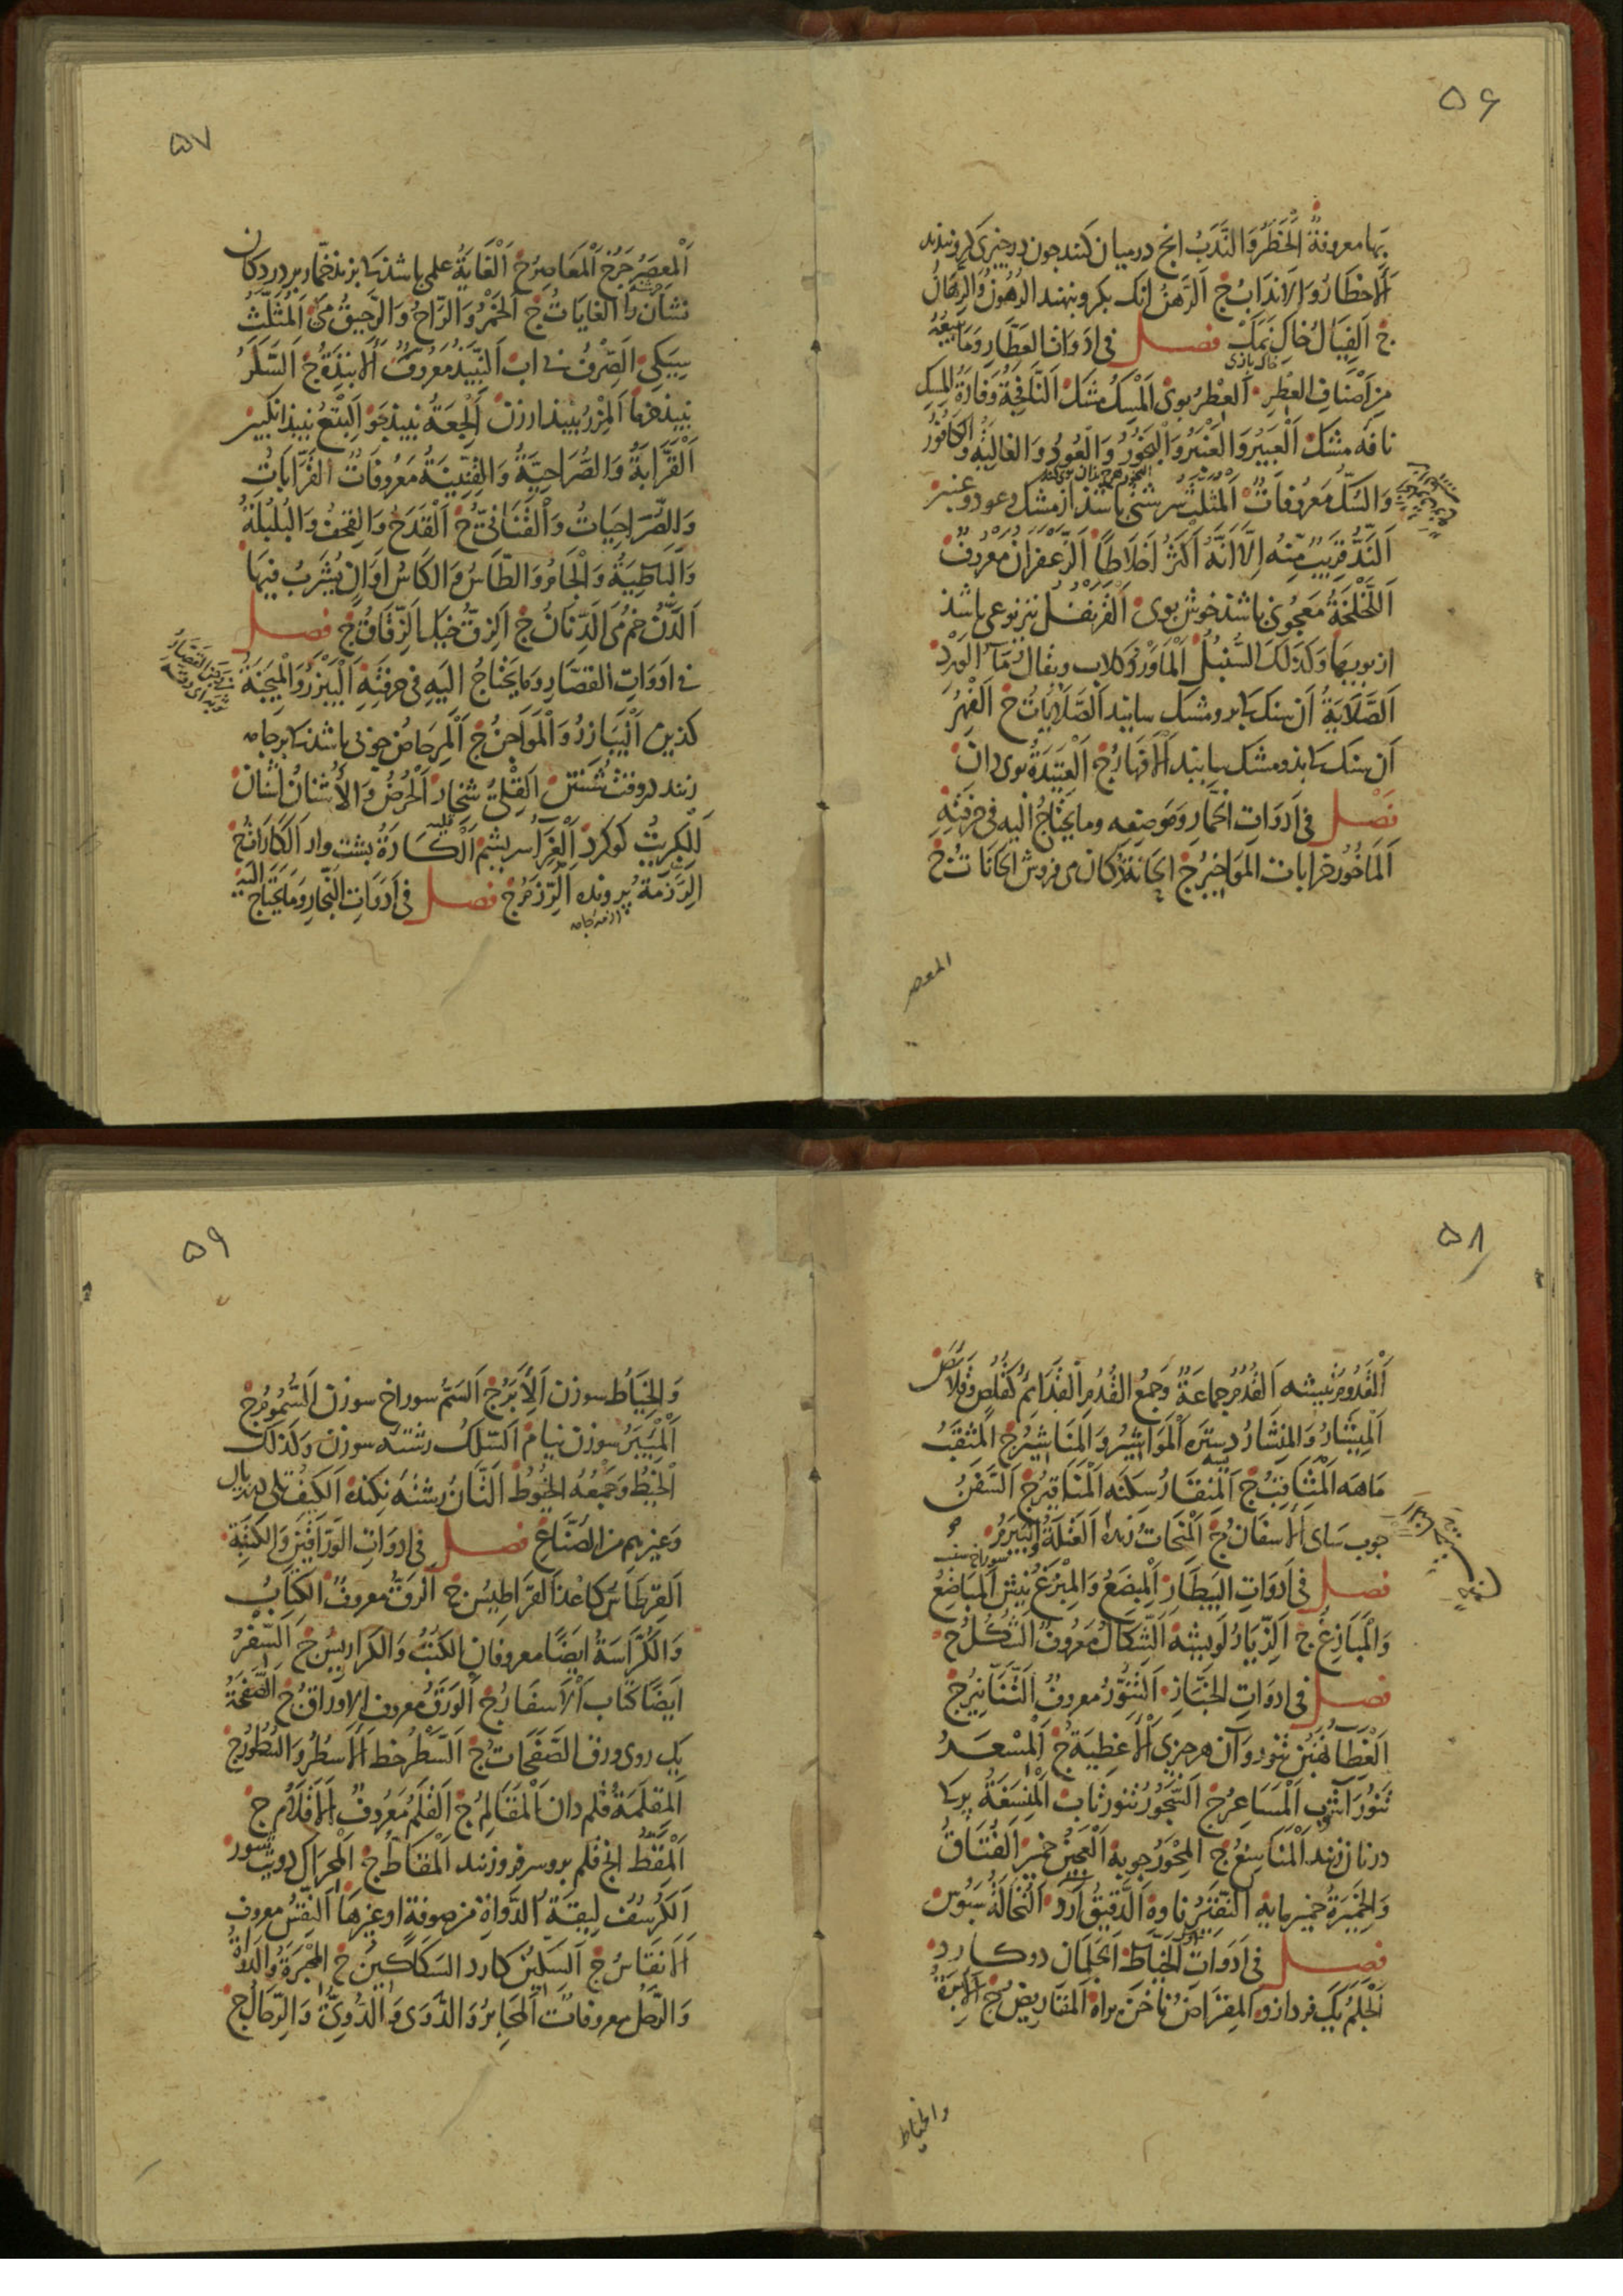 ۵۶
بها معروفة الخَطَرُ وَالنَّدَبُ انچ درمیان کنند چون در چیزی گرو بندند
اَلاَخْطَارُ وَالاَنْدَابُ ج اَلرَّهْنُ انک بکرو بنهند الرُّهُونُ وَالرِّهَانُ
ج اَلفِيَالُ خاک نمک فصل فى ادوات العَطَّارِ وَمَا يَبِيعُهُ
خاک بازی
مِن اَصْنَافِ العِطْرِ اَلعِطْرُ بوی اَلْمِسْكُ مشک النَّافِجَةُ وَفَارَةُ المِسْكِ
نافه مشک اَلْعَبِيرُ وَالعَنْبَرُ وَالْبَخُورُ وَالْعُودُ وَالغَالِيَةُ وَالكَافُورُ
وَالسُّكُّ مَعْرُوفَاتٌ اَلْمُثَلَّثُ سرشتی باشد از مشک و عود و عنبر
اَلنَّدُّ قَرِيبٌ مِنْهُ اِلاَّ اَنَّهُ اَكْثَرُ اَخْلاَطًا اَلزَّعْفَرَانُ مَعْرُوفٌ
اَللَّخْلَخَةُ مَعجونی باشد خوش بوی اَلْقَرَنْفُلُ نیز نوعی باشد
از بویها وَكَذَلِكَ السُّنْبُلُ اَلْمَاوَرْدُ کلاب ويقال مَآءُ الوَرْدِ
اَلصَّلاَيَةُ آن سنک کا برو مشک سایند الصَّلاَيَاتُ ج اَلْفِهْرُ
آن سنک کا بذو مشک سایند اَلاَفْهَارُ ج اَلْعَتِيدَةُ بوی دان
فصل فى اَدَوَاتِ الخَمَّارِ وَمَوضِعِهِ وما يَحْتَاجُ اليه فى حِرْفَتِهِ
اَلمَاخُورُ خرابات المَوَاخِيرُ ج الحَانَةُ دکان می فروش الحَانَاتُ ج
المعصر
۵۷
اَلْمِعْصَرُ چرخ اَلْمَعَاصِرُ ج اَلْغَايَةُ علمی باشد کا بزند خمّار بر در دکان
نشان را الغَايَاتُ ج اَلْخَمْرُ وَالرَّاحُ وَالرَّحِيقُ می اَلْمُثَلَّثُ
سیکی اَلصِّرْفُ بی اب اَلنَّبِيذُ مَعْرُوفٌ اَلاَنْبِذَةُ ج اَلسَّكَرُ
نبیذ خرما اَلْمِزْرُ نبیذ ارزن اَلْجِعَةُ نبیذ جَو اَلْبِتْعُ نبیذ انکبین
اَلْقَرَّابَةُ وَالصُّرَاحِيَّةُ وَالقِنِّينَةُ مَعْرُوفَاتٌ القَرَّابَاتُ
وَالصُّرَاحِيَاتُ وَالْقَنَانِىُّ ج اَلْقَدَحُ وَالقِحْفُ وَالْبُلْبُلَةُ
وَالْبَاطِيَةُ وَالْجَامُ وَالطَّاسُ وَالكَاسُ اَوَانٍ يُشْرَبُ فِيهَا
اَلدَّنُّ خم می اَلدِّنَانُ ج اَلزِّقُّ خيك الزِّقَاقُ ج فصل
فى اَدَوَاتِ القَصَّارِ وَمَا يَحْتَاجُ اليهِ فى حِرْفَتِهِ اَلْبَيْزَرُ وَالْمِيجَنَةُ
کذین اَلْبَيَازِرُ وَالْمَوَاجِنُ ج اَلْمِرحَاضُ چوبی باشد کا بر جامه
زنند در وقت شستن اَلقِلْىُ شخار اَلْحُرُضُ وَالاُشْنَانُ اشنان
اَلكِبْرِيتُ کوکرد اَلْغِرَا سریشم اَلْكَارَةُ بشت وار اَلكَارَاتُ ج
اَلرِّزْمَةُ پرونده اَلرِّزَمُ ج فصل فى اَدَوَاتِ النَّجَّارِ وَمَا يَحْتَاجُ اليه
۵۸
اَلْقَدُومُ تیشه اَلقُدُمُ جماعةٌ وَجمعُ القُدُمِ القَدَائِمُ كَقُلُصٍ وَقَلاَئِصَ
اَلْمِيشَارُ وَالمِنْشَارُ دستره اَلْمَوَاشِيرُ وَالمَنَاشِيرُ ج المِثْقَبُ
مَاهَه اَلْمَثَاقِبُ ج اَلمِنْقَارُ سِكَنَه اَلْمَنَاقِيرُ ج اَلسَّفَنُ
چوب سای الاَسفَانُ ج اَلْمِنْحَاتُ رنده اَلعَتَلَةُ وَالبَيْرَمُ
فصل فى اَدَوَاتِ البَيْطَارِ اَلْمِبْضَعُ وَالْمِبْزَغُ نیش اَلْمَبَاضِعُ
وَالْمَبَازِغُ ج اَلزِّيَارُ لَویشه اَلشِّكَالُ مَعْرُوفٌ الشُّكُلُ ج
فصل فى ادوَاتِ الخَبَّازِ اَلتَّنُّورُ معروفٌ التَّنَانِيرُ ج
اَلْغِطَآءُ نُهُنبن تنور و آن هر چیزی اَلاَغْطِيَةُ ج اَلْمِسْعَرُ
تنورَاشُوب اَلْمَسَاعِرُ ج اَلسَّجُورُ تنور تاب اَلْمِنْسَغَةُ پر کا
در نان زنند اَلْمَنَاسِغُ ج اَلمِحْوَرُ چوبه اَلْعَجِينُ خمیر اَلفُتَاقُ
وَالخَمِيرَةُ خمیر مایه اَلنَّقِيرُ ناوه اَلدَّقِيقُ آرد اَلنُّخَالَةُ سَبوس
فصل فى اَدَوَاتِ الخَيَّاطِ اَلجَلَمَانِ دوکارد
اَلْجَلَمُ یکی فرد ازو اَلمِقرَاضُ ناخن براه اَلمَقَارِيضُ ج اَلاِبْرَةُ
والخياط
۵۹
وَالْخِيَاطُ سوزن اَلاِبَرُ ج اَلسَّمُّ سوراخ سوزن اَلسُّمُومُ ج
اَلْمِئْبَرُ سوزن نیام اَلسِّلكُ رشته سوزن وَكذلك
اَلْخَيْطُ وَجَمْعُه الخُيُوطُ
وَغيرِهم من الصُّنَّاعِ فصل فى ادوَاتِ الوَرَّاقِينَ وَالكَتَبَةِ
اَلقِرْطَاسُ کاغذ القَرَاطِيسُ ج اَلرَّقُّ معروفٌ الكِتَابُ
وَالكُرَّاسَةُ ايضًا معروفان الكُتُبُ وَالكَرَارِيسُ ج اَلسِّفرُ
ايضًا كتاب اَلاَسفَارُ ج اَلوَرَقُ معروف الاوراقُ ج الصَّفْحَةُ
یک روی ورق الصَّفَحَاتُ ج اَلسَّطْرُ خط اَلاَسْطُرُ وَالسُّطُورُ ج
اَلمِقلَمَةُ قلم دان اَلْمَقَالِمُ ج اَلقَلَمُ مَعْرُوفٌ اَلاَقْلاَمُ ج
اَلْمِقَطُّ انچ قلم برو سر فرو زنند اَلْمَقَاطُّ ج اَلْمِحْرَاكُ دویت شور
اَلكُرْسُفُ لِيقَةُ الدَّوَاةِ من صوفةٍ اَو غيرِهَا اَلنِّقْسُ معروف
اَلاَنْقَاسُ ج اَلسِّكِّينُ کارد السَّكَاكِينُ ج المِحْبَرَةُ وَالدَّوَاةُ
معروفات اَلْمَحَابِرُ وَالدَّوَى وَالدُّوِىُّ ج